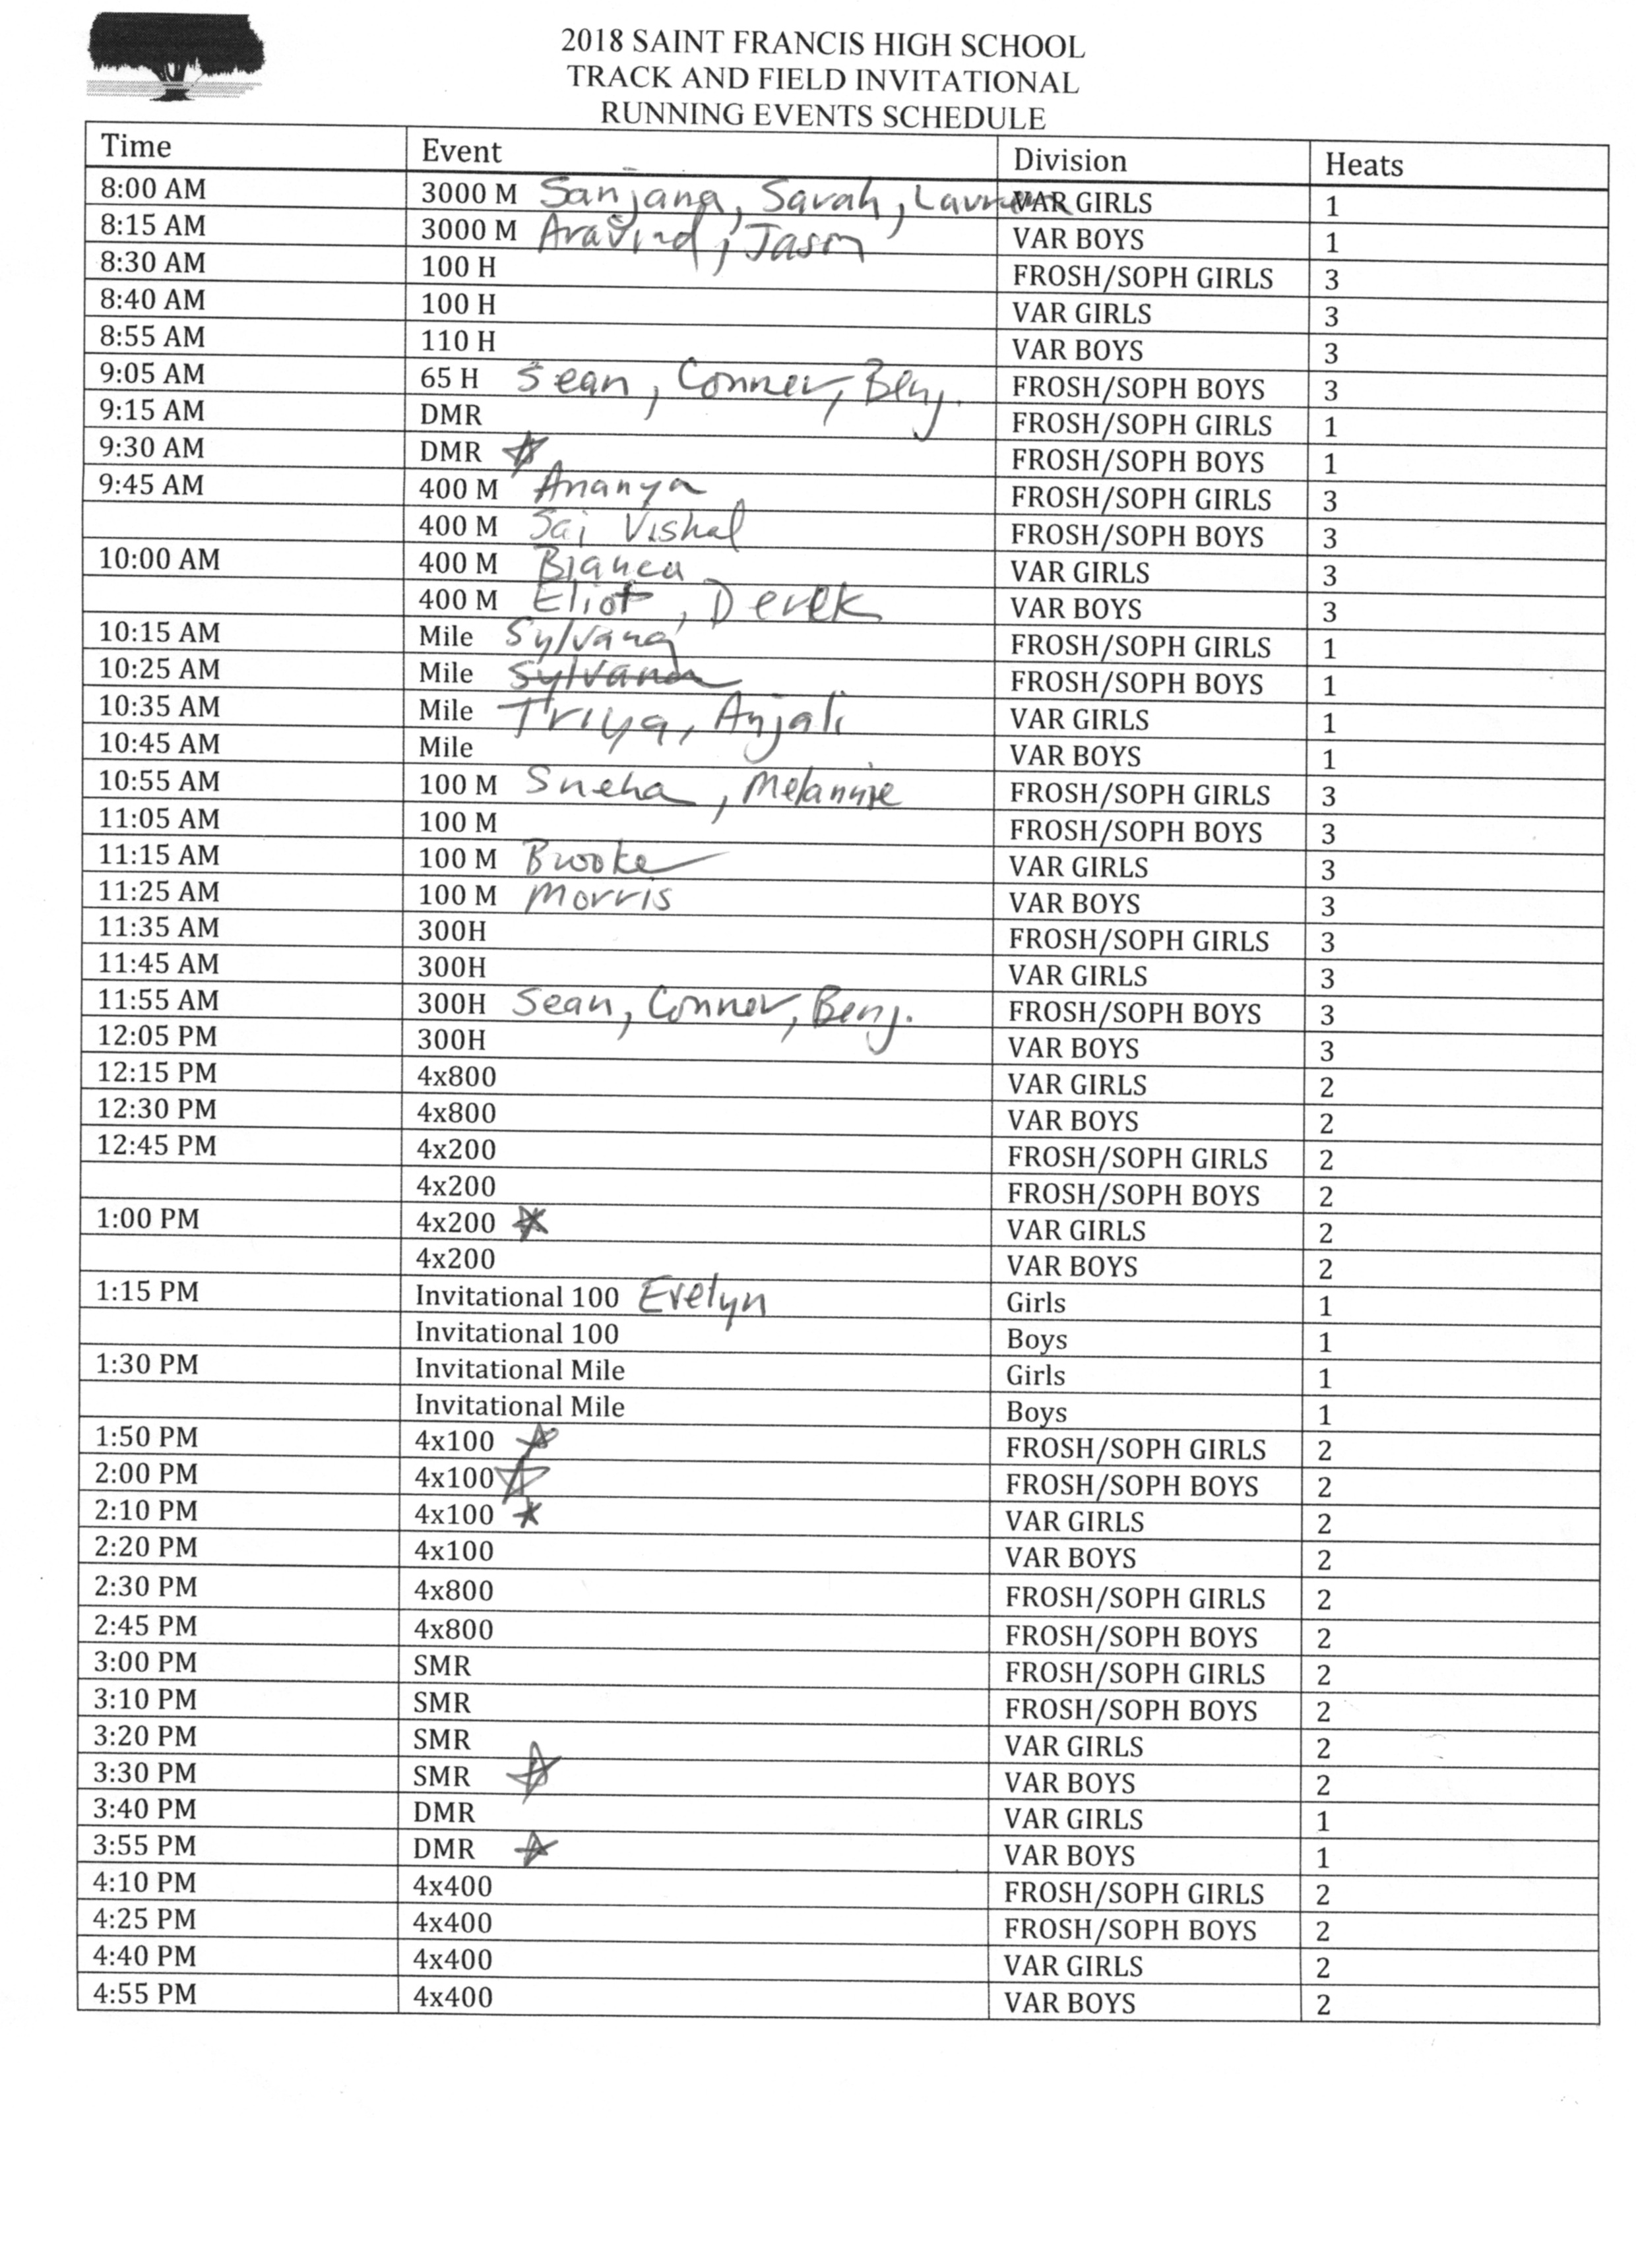 2018 SAINT FRANCIS HIGH SCHOOL
TRACK AND FIELD INVITATIONAL
RUNNING EVENTS SCHEDULE
Time Event Division Heats
8:00 AM 3000 M Sanjana, Sarah, Lauren VAR GIRLS 1
8:15 AM 3000 M Aravind, Jason VAR BOYS 1
8:30 AM 100 H FROSH/SOPH GIRLS 3
8:40 AM 100 H VAR GIRLS 3
8:55 AM 110 H VAR BOYS 3
9:05 AM 65 H Sean, Conner, Benj. FROSH/SOPH BOYS 3
9:15 AM DMR FROSH/SOPH GIRLS 1
9:30 AM DMR FROSH/SOPH BOYS 1
9:45 AM 400 M Ananya FROSH/SOPH GIRLS 3
400 M Sai Vishal FROSH/SOPH BOYS 3
10:00 AM 400 M Bianca VAR GIRLS 3
400 M Eliot, Derek VAR BOYS 3
10:15 AM Mile Sylvana FROSH/SOPH GIRLS 1
10:25 AM Mile Sylvana FROSH/SOPH BOYS 1
10:35 AM Mile Triya, Anjali VAR GIRLS 1
10:45 AM Mile VAR BOYS 1
10:55 AM 100 M Sneha, Melannie FROSH/SOPH GIRLS 3
11:05 AM 100 M FROSH/SOPH BOYS 3
11:15 AM 100 M Brooke VAR GIRLS 3
11:25 AM 100 M Morris VAR BOYS 3
11:35 AM 300H FROSH/SOPH GIRLS 3
11:45 AM 300H VAR GIRLS 3
11:55 AM 300H Sean, Conner, Benj. FROSH/SOPH BOYS 3
12:05 PM 300H VAR BOYS 3
12:15 PM 4x800 VAR GIRLS 2
12:30 PM 4x800 VAR BOYS 2
12:45 PM 4x200 FROSH/SOPH GIRLS 2
4x200 FROSH/SOPH BOYS 2
1:00 PM 4x200 VAR GIRLS 2
4x200 VAR BOYS 2
1:15 PM Invitational 100 Evelyn Girls 1
Invitational 100 Boys 1
1:30 PM Invitational Mile Girls 1
Invitational Mile Boys 1
1:50 PM 4x100 FROSH/SOPH GIRLS 2
2:00 PM 4x100 FROSH/SOPH BOYS 2
2:10 PM 4x100 VAR GIRLS 2
2:20 PM 4x100 VAR BOYS 2
2:30 PM 4x800 FROSH/SOPH GIRLS 2
2:45 PM 4x800 FROSH/SOPH BOYS 2
3:00 PM SMR FROSH/SOPH GIRLS 2
3:10 PM SMR FROSH/SOPH BOYS 2
3:20 PM SMR VAR GIRLS 2
3:30 PM SMR VAR BOYS 2
3:40 PM DMR VAR GIRLS 1
3:55 PM DMR VAR BOYS 1
4:10 PM 4x400 FROSH/SOPH GIRLS 2
4:25 PM 4x400 FROSH/SOPH BOYS 2
4:40 PM 4x400 VAR GIRLS 2
4:55 PM 4x400 VAR BOYS 2